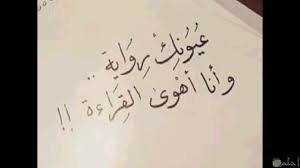 عُيُونُكِ رِوَاية ..
وأنا أهْوىَ القِرَاءة !!